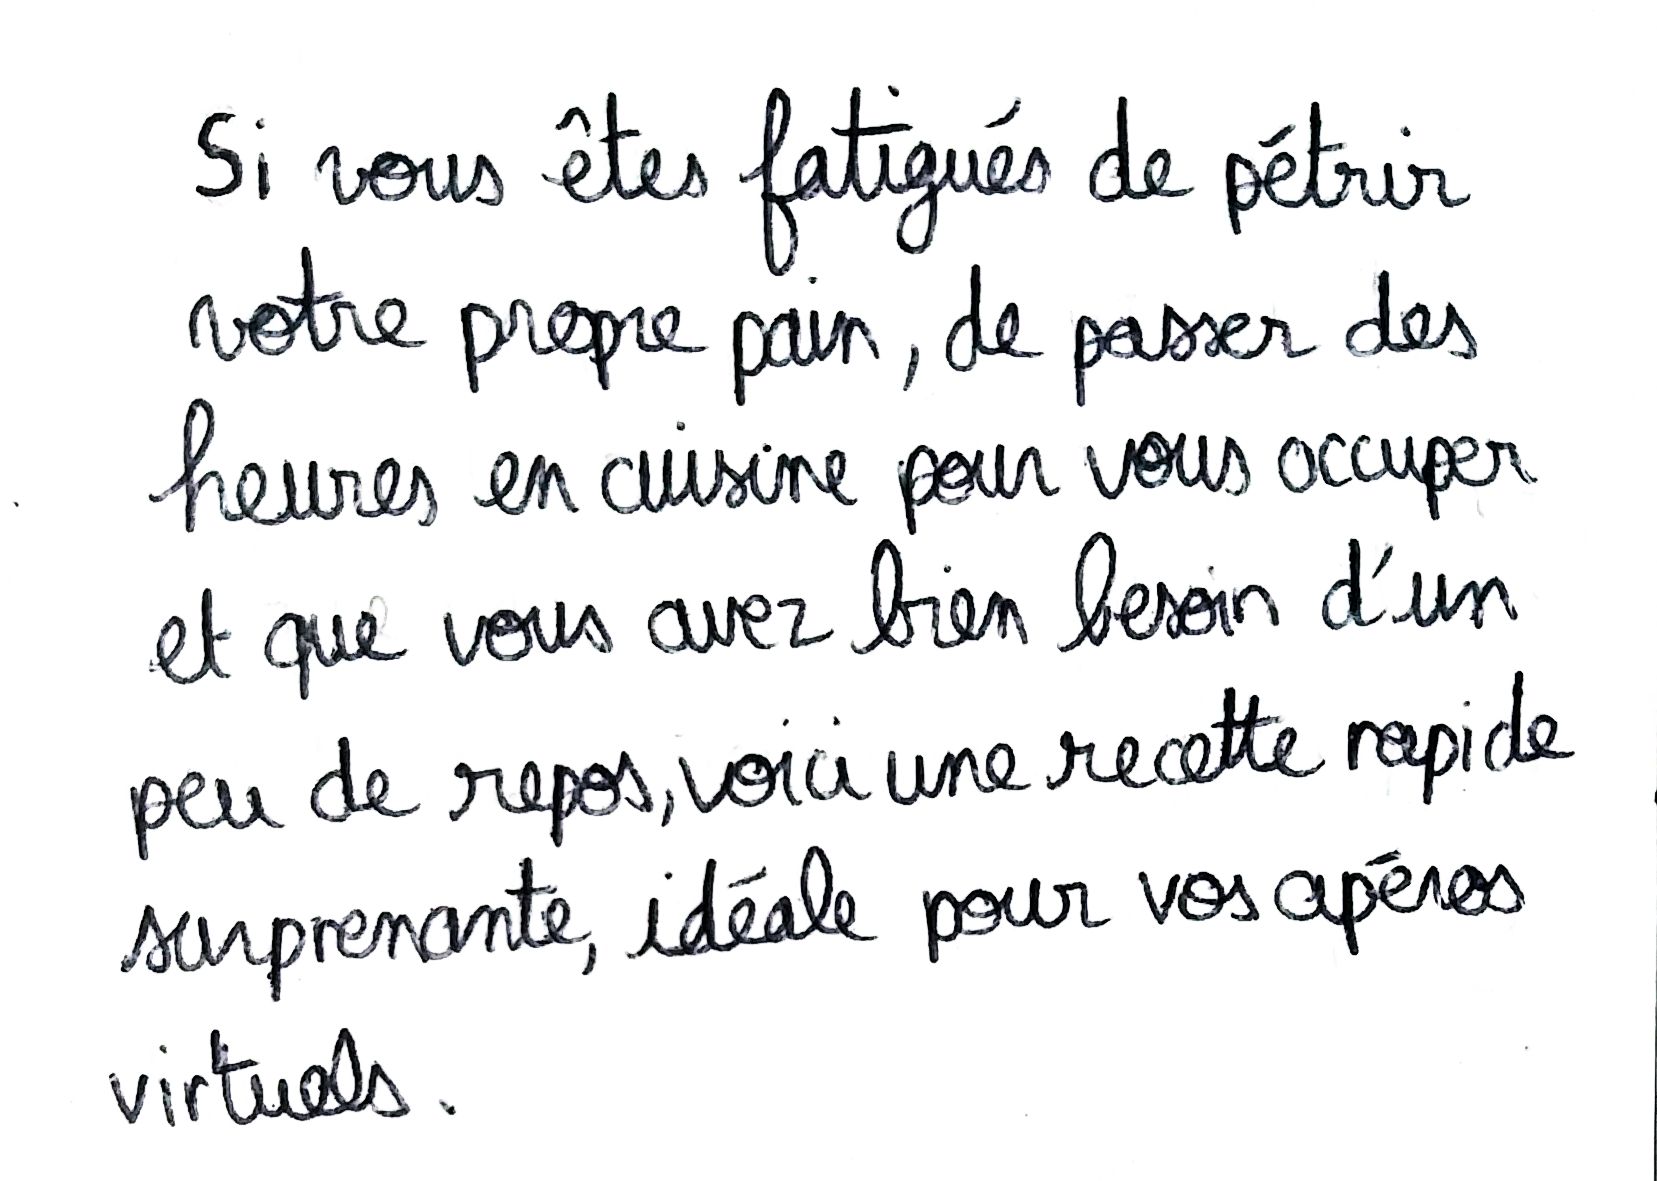 Si vous êtes fatigués de pétrir
votre propre pain, de passer des
heures en cuisine pour vous occuper
et que vous avez bien besoin d'un
peu de repos, voici une recette rapide
surprenante, idéale pour vos apéros
virtuels.